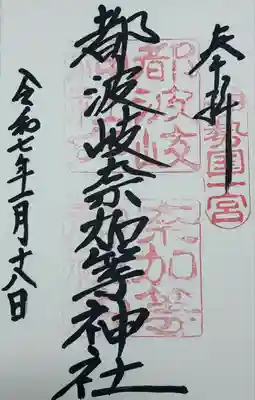 奉拝
伊勢國一宮
都波岐奈加等神社
都波岐
奈加等
神社
令和七年一月十八日